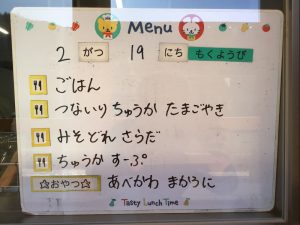 Menu
2 がつ 19 にち もくようび
ごはん
つないり ちゅうか たまごやき
みそどれ さらだ
ちゅうか すーぷ
☆おやつ☆ あべかわ まかろに
Tasty Lunch Time